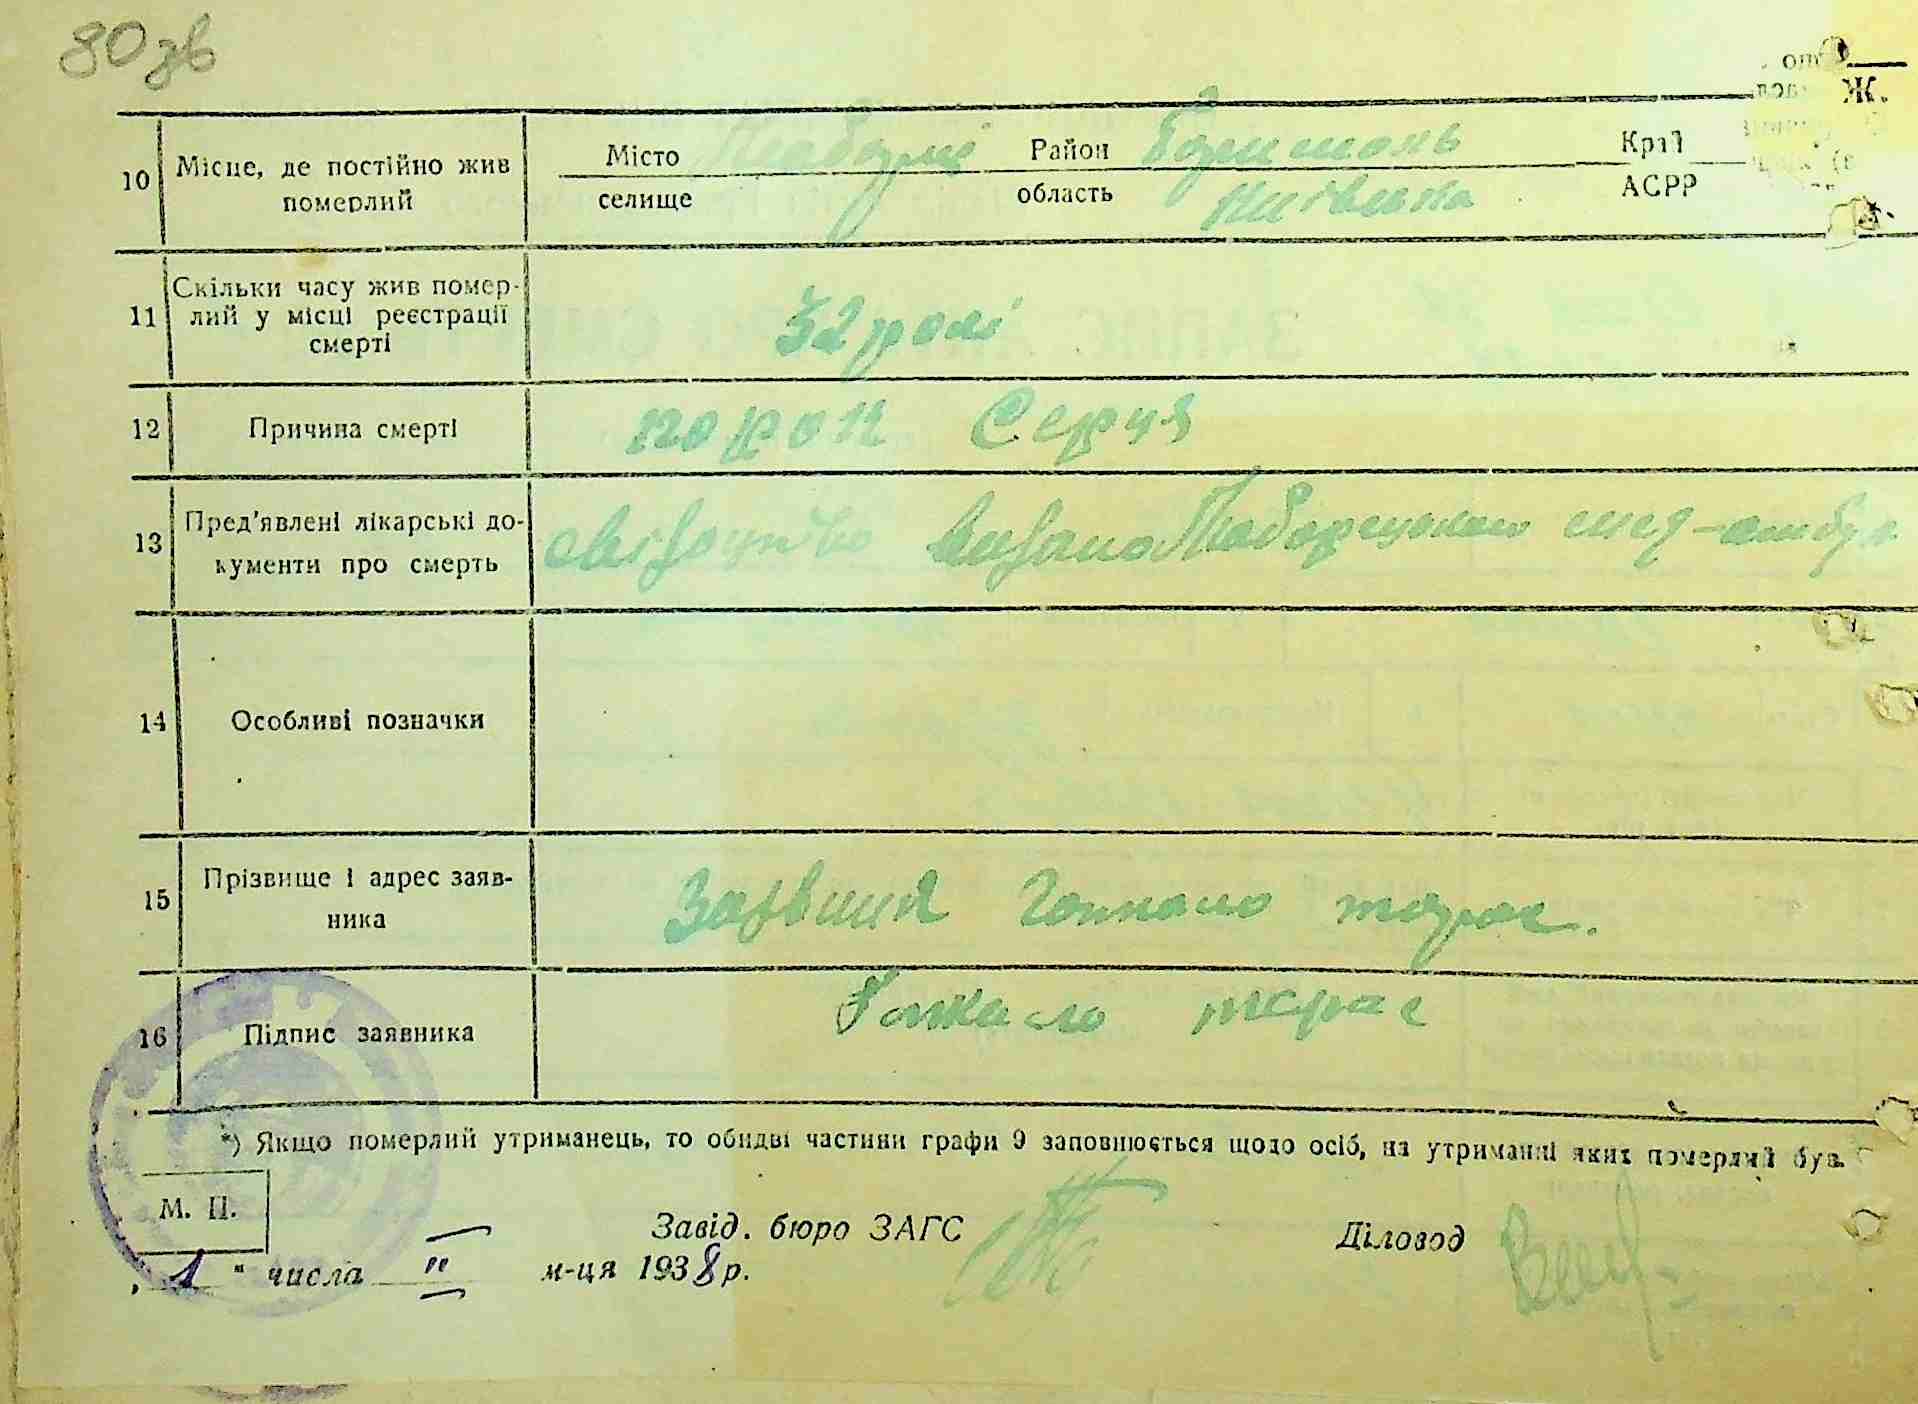 80 зв
10 Місце, де постійно жив померлий
Місто Район Борисполь Край
селище область Київська АСРР
11 Скільки часу жив помер-
лий у місці реєстрації
смерті
32 роки
12 Причина смерті порок Серця
13 Пред'явлені лікарські до-
кументи про смерть
видано мед-амбул
14 Особливі позначки
15 Прізвище і адрес заяв-
ника
тарас.
16 Підпис заявника тарас
*) Якщо померлий утриманець, то обидві частини графи 9 заповнюється щодо осіб, на утриманні яких померлий був.
М. П.
Завід. бюро ЗАГС Діловод
„1" числа II м-ця 1938 р.